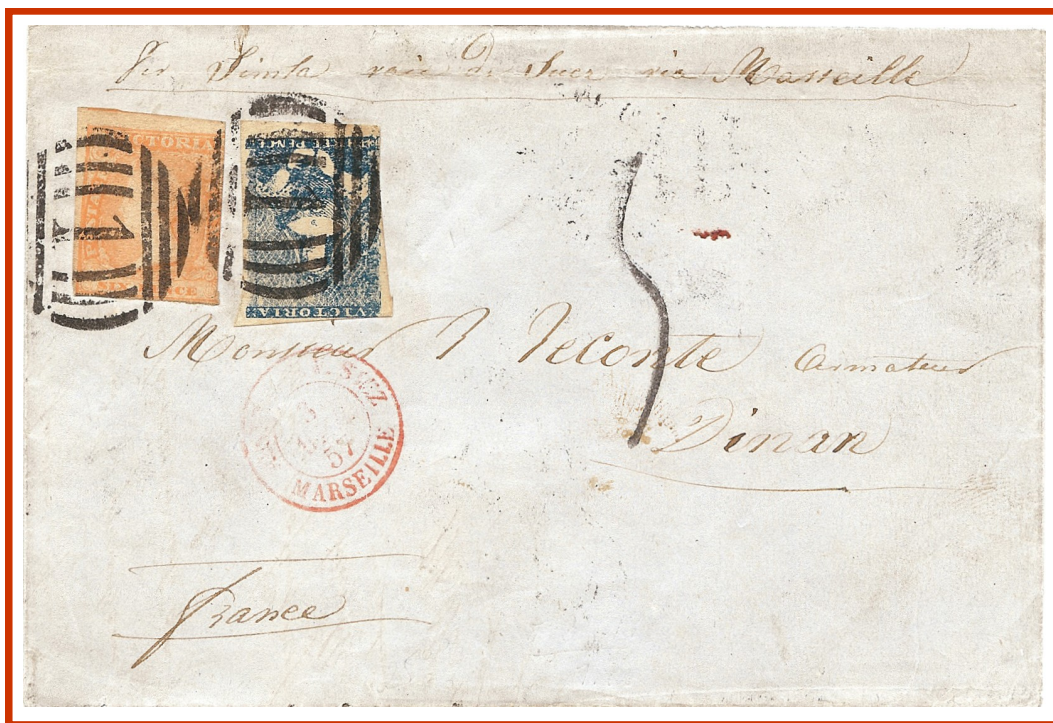 Per Simla voie de Suez via Marseille
VICTORIA
PENCE
1 V
1 V
VICTORIA
Monsieur J Leconte Armateur
Dinan
SUEZ
57
MARSEILLE
france